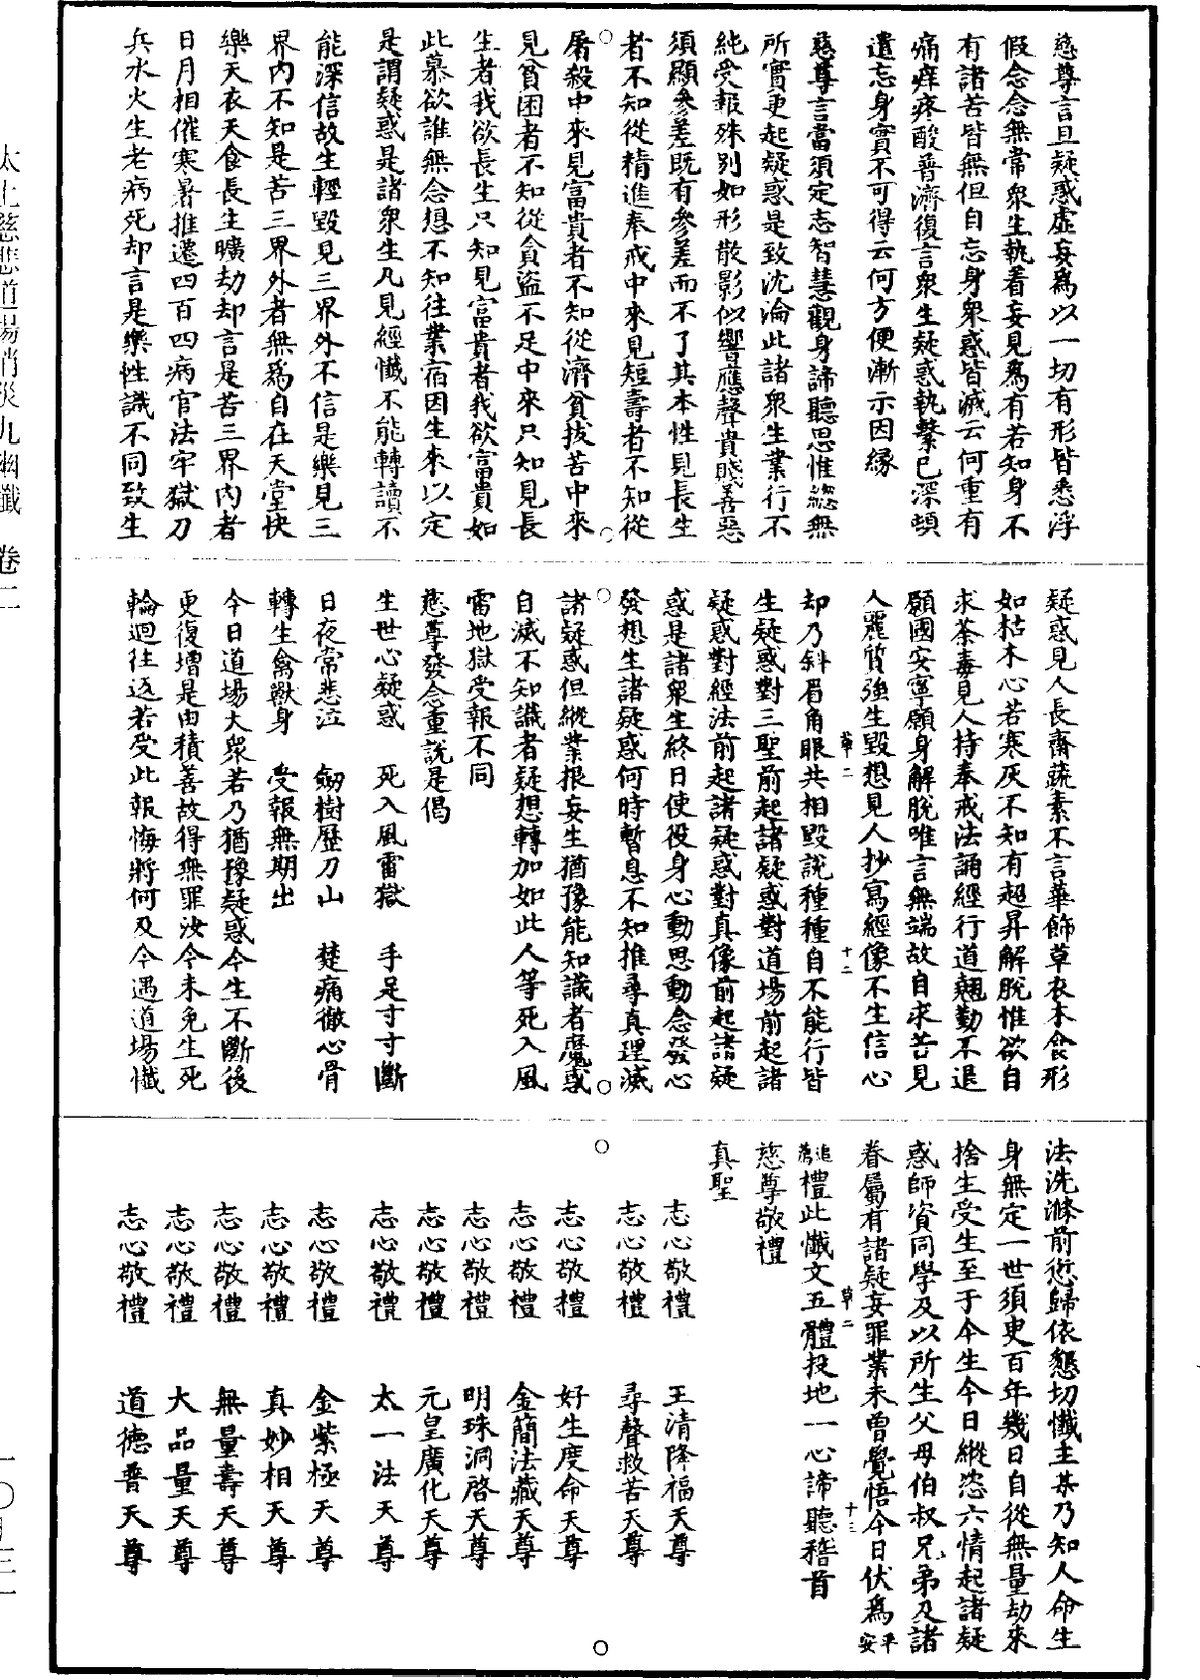 慈尊言且疑惑虛妄爲以一切有形皆悉浮
假念念無常衆生執着妄見爲有若知身不
有諸苦皆無但自忘身衆惑皆滅云何重有
痛痒疼酸普濟復言衆生疑惑執繫已深頓
遣忘身實不可得云何方便漸示因緣
慈尊言當須定志智慧觀身諦聽思惟恣無
所實更起疑惑是致沈淪此諸衆生業行不
純受報殊別如形散影似響應聲貴賤善惡
須顯參差既有參差而不了其本性見長生
者不知從精進奉戒中來見短壽者不知從
屠殺中來見富貴者不知從濟貧拔苦中來
見貧困者不知從貪盜不足中來只知見長
生者我欲長生只知見富貴者我欲富貴如
此慕欲誰無念想不知往業宿因生來以定
是謂疑惑是諸衆生凡見經懺不能轉讀不
能深信故生輕毀見三界外不信是樂見三
界內不知是苦三界外者無爲自在天堂快
樂天衣天食長生曠劫却言是苦三界內者
日月相催寒暑推遷四百四病官法牢獄刀
兵水火生老病死却言是樂性識不同致生
疑惑見人長齋蔬素不言華飾草衣木食形
如枯木心若寒灰不知有超昇解脫惟欲自
求荼毒見人持奉戒法誦經行道翹勤不退
願國安寧願身解脫唯言無端故自求苦見
人麗質強生毀想見人抄寫經像不生信心
草二 十二
却乃斜眉角眼共相毀說種種自不能行皆
生疑惑對三聖前起諸疑惑對道場前起諸
疑惑對經法前起諸疑惑對真像前起諸疑
惑是諸衆生終日使役身心動思動念發心
發想生諸疑惑何時暫息不知推尋真理滅
諸疑惑但縱業根妄生猶豫能知識者魔惑
自滅不知識者疑想轉加如此人等死入風
雷地獄受報不同
慈尊發念重說是偈
生世心疑惑 死入風雷獄 手足寸寸斷
日夜常悲泣 劒樹歷刀山 楚痛徹心骨
轉生禽獸身 受報無期出
今日道場大衆若乃猶豫疑惑今生不斷後
更復增是由積善故得無罪汝今未免生死
輪迴往返若受此報悔將何及今遇道場懺
法洗滌前愆歸依懇切懺主某乃知人命生
身無定一世須臾百年幾日自從無量劫來
捨生受生至于今生今日縱恣六情起諸疑
惑師資同學及以所生父母伯叔兄弟及諸
眷屬有諸疑妄罪業未曾覺悟今日伏爲平安
草二 十三
追薦禮此懺文五體投地一心諦聽稽首
慈尊敬禮
真聖
志心敬禮 王清降福天尊
志心敬禮 尋聲救苦天尊
志心敬禮 好生度命天尊
志心敬禮 金簡法藏天尊
志心敬禮 明珠洞啓天尊
志心敬禮 元皇廣化天尊
志心敬禮 太一法天尊
志心敬禮 金紫極天尊
志心敬禮 真妙相天尊
志心敬禮 無量壽天尊
志心敬禮 大品量天尊
志心敬禮 道德普天尊
太上慈悲道場消災九幽懺 卷二